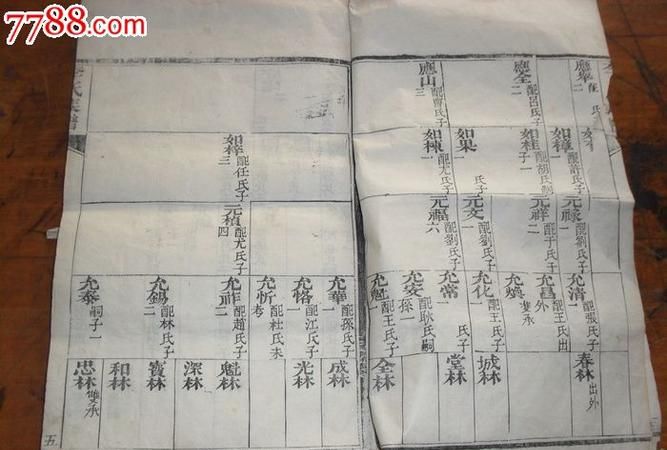 7788.com
應舉配 氏
應全配呂氏子二
應山配曹氏子三
如樟配許氏子一
如桂配胡氏 子一
如果 氏子一
如棟配尤氏子一
元祿配劉氏子一
元祥配于氏子二
元文配劉氏子一
元福配劉氏子六
允清配張氏子一
允昌配王氏出外
允煥雙承
允化配王氏子一
允常 氏子一
允安配耿氏嗣孫一
允魁配王氏子一
春林出外
城林
堂林
全林
氏族譜
如梓配任氏子三
元積配尤氏子四
允華配孫氏子一
允恪配江氏子一
允忻配杜氏未考
允祚配趙氏子二
允錫配林氏子二
允泰嗣子一
成林
光林
魁林
深林
賓林
和林
忠林雙承
五